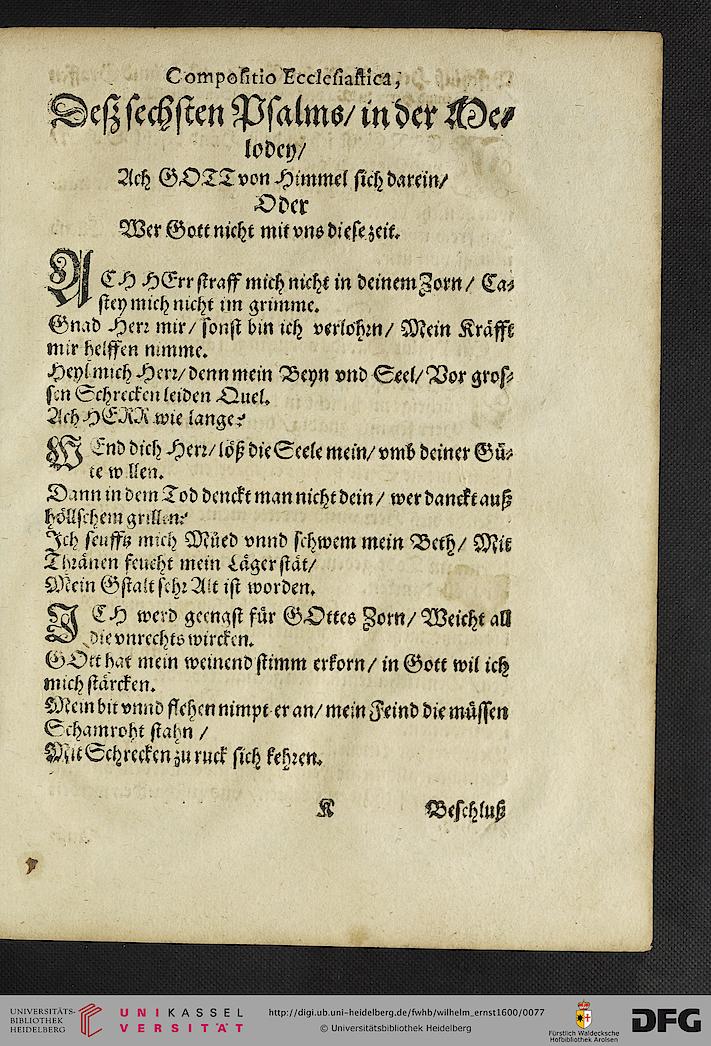 Compositio Ecclesiastica,
Deß sechsten Psalms/ in der Me⸗
lodey/
Ach GOTT von Himmel sich darein/
Oder
Wer Gott nicht mit vns diese zeit.
ACH HErr straff mich nicht in deinem Zorn / Ca⸗
stey mich nicht im grimme.
Gnad Herr mir/ sonst bin ich verlohrn/ Mein Kräffte
mir helffen nimme.
Heyl mich Herr/ denn mein Beyn vnd Seel/ Vor gros⸗
sen Schrecken leiden Quel.
Ach HERR wie lange?
WEnd dich Herr/ löß die Seele mein/ vmb deiner Gü⸗
te willen.
Dann in dem Tod denckt man nicht dein / wer danckt auß
höllschem grillen?
Ich seufftz mich Müed vnnd schwem mein Beth/ Mit
Thränen feucht mein Läger stät/
Mein Gstalt sehr Alt ist worden.
ICH werd geengst für GOttes Zorn/ Weicht all
die vnrechts wircken.
GOtt hat mein weinend stimm erkorn/ in Gott wil ich
mich stärcken.
Mein bit vnnd flehen nimpt er an/ mein Feind die müssen
Schamroht stahn /
Mit Schrecken zu ruck sich kehren.
K Beschluß
UNIVERSITÄTS-
BIBLIOTHEK
HEIDELBERG
UNIKASSEL
VERSITÄT
http://digi.ub.uni-heidelberg.de/fwhb/wilhelm_ernst1600/0077
© Universitätsbibliothek Heidelberg
Fürstlich Waldecksche
Hofbibliothek Arolsen
DFG